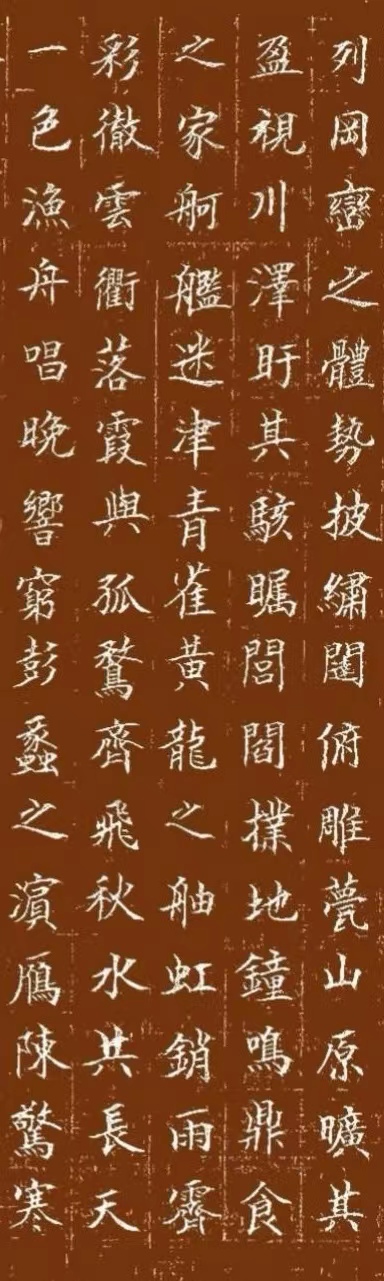 列岡巒之體勢披繡闥俯雕甍山原曠其
盈視川澤盱其駭矚閭閻撲地鐘鳴鼎食
之家舸艦迷津青雀黃龍之舳虹銷雨霽
彩徹雲衢落霞與孤鶩齊飛秋水共長天
一色漁舟唱晚響窮彭蠡之濱鴈陳驚寒